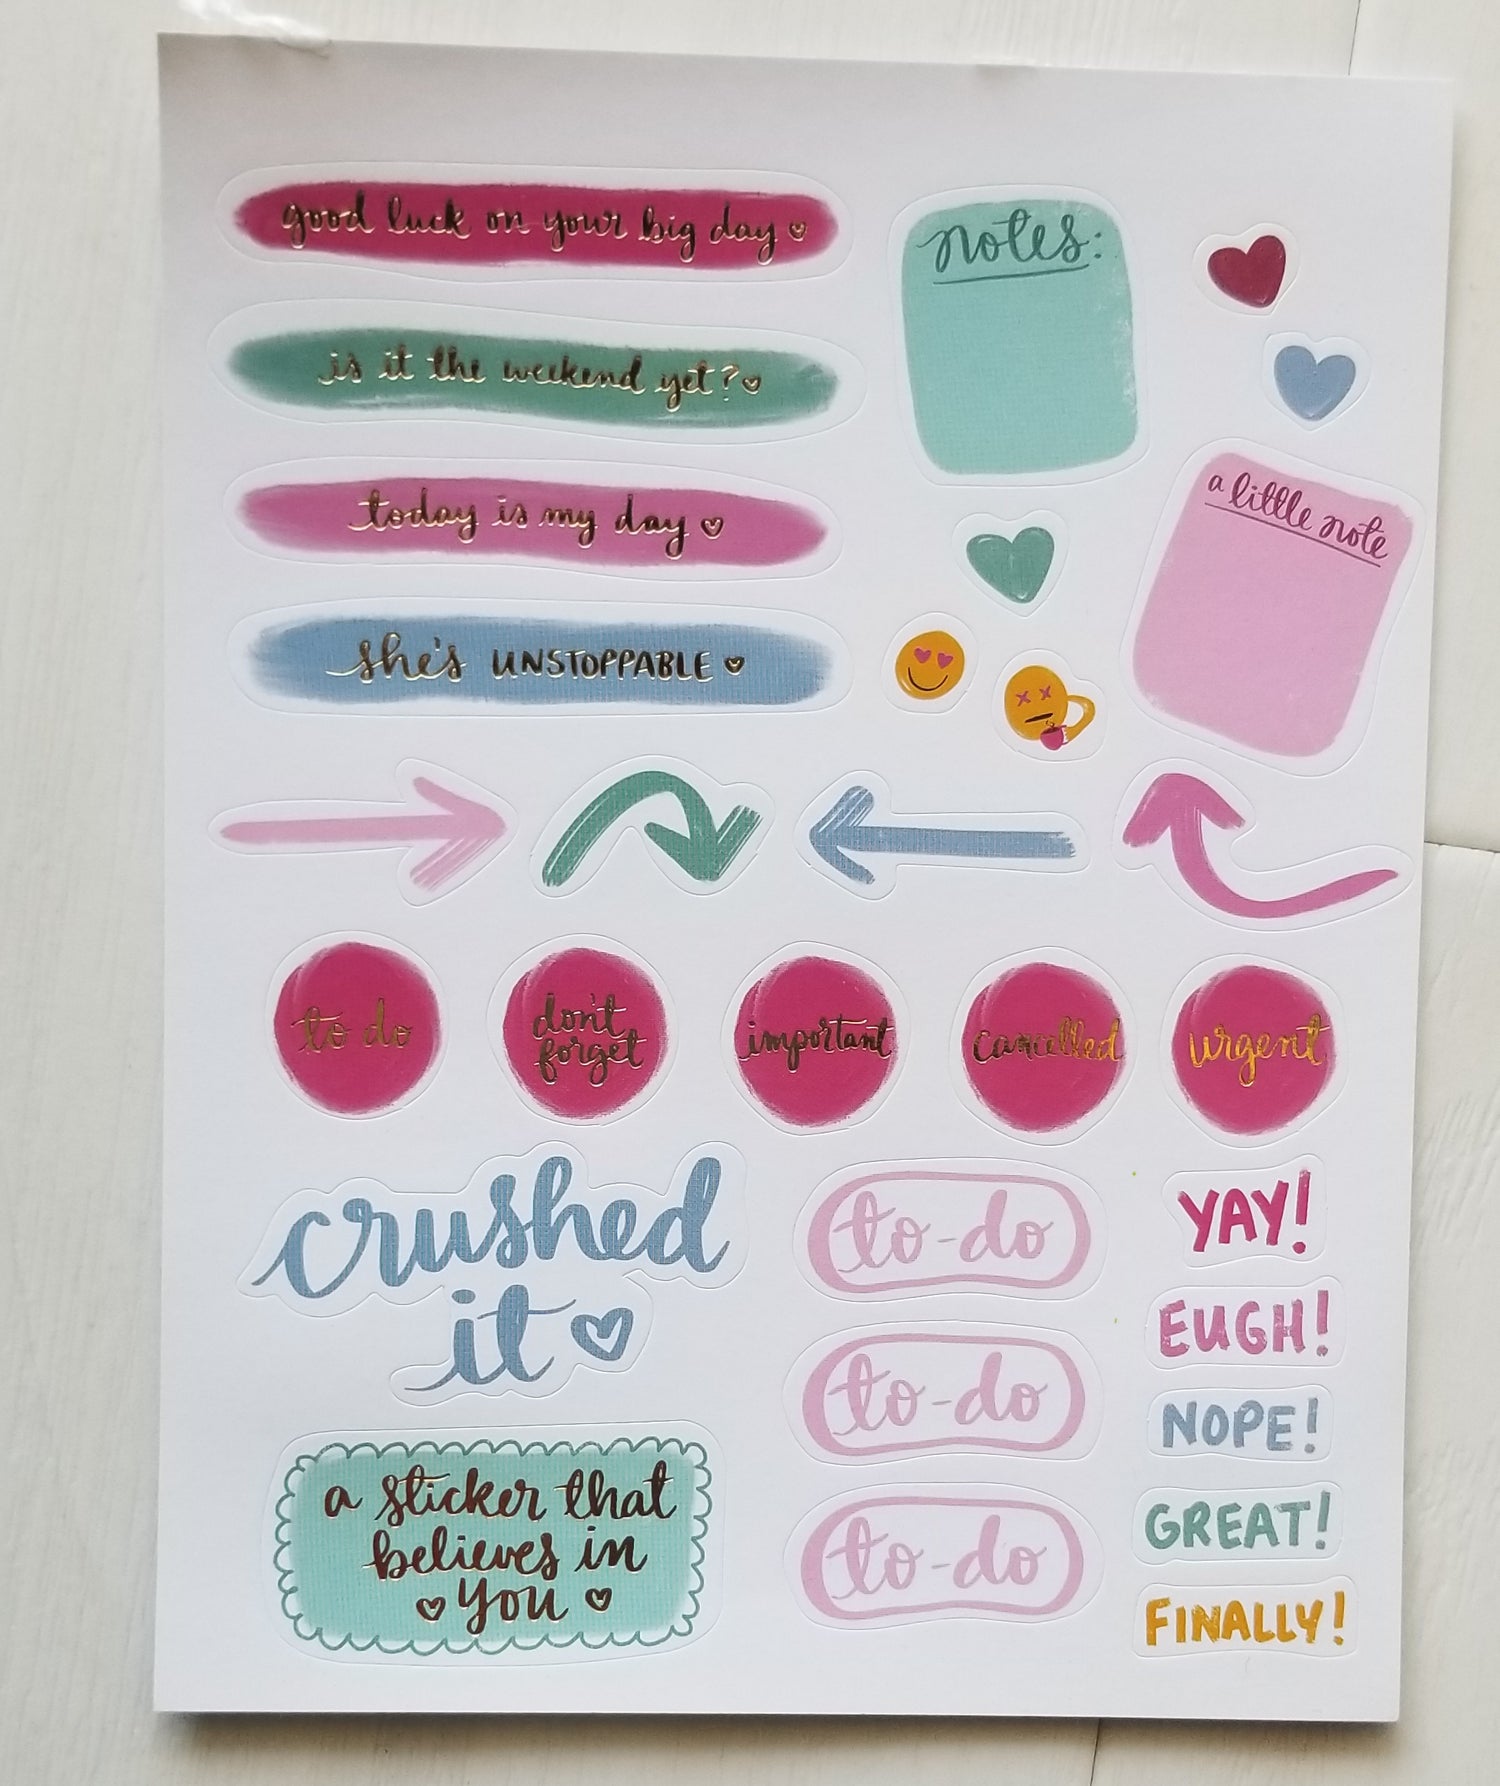 good luck on your big day
is it the weekend yet?
today is my day
she's UNSTOPPABLE
notes:
a little note
to do
don't
forget
important
cancelled
urgent
crushed
it
a sticker that
believes in
you
to-do
to-do
to-do
YAY!
EUGH!
NOPE!
GREAT!
FINALLY!